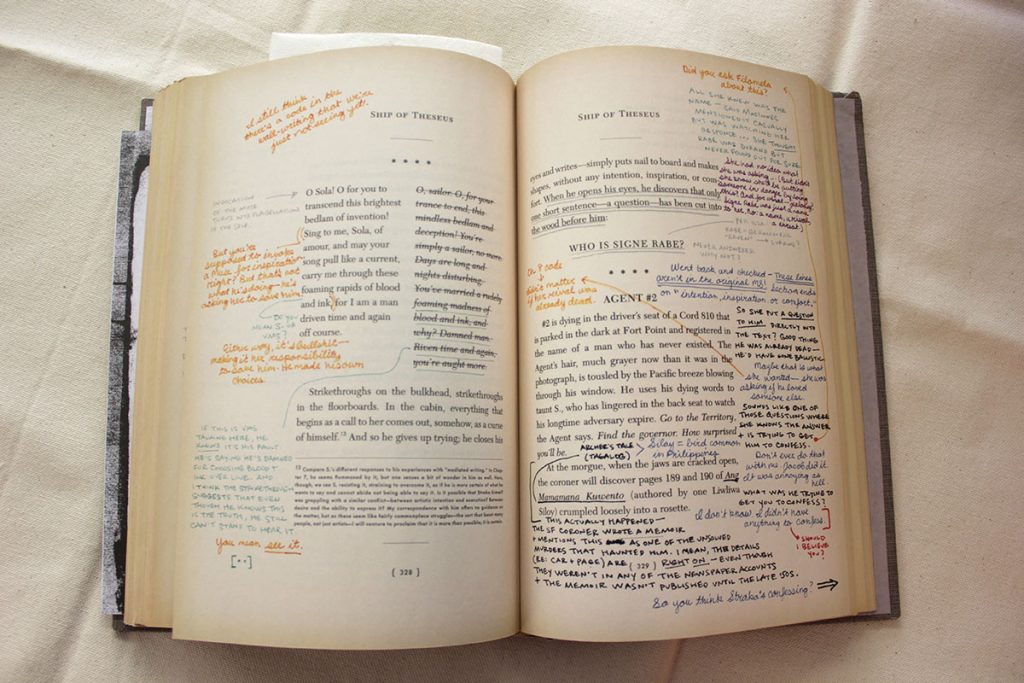 I still think
there's a code in the
wall-writing that we're
just not seeing yet.
SHIP OF THESEUS
INVOCATION
OF THE MUSE
TURNS INTO
IS THE SHIP.
O Sola! O for you to
transcend this brightest
bedlam of invention!
Sing to me, Sola, of
amour, and may your
song pull like a current,
carry me through these
foaming rapids of blood
and ink, for I am a man
driven time and again
off course.
O, sailor. O, for your
trance to end, this
mindless bedlam and
deception! You're
simply a sailor, no more.
Days are long and
nights disturbing.
You've married a ruddy
foaming madness of
blood and ink, and
why? Damned man.
Riven time and again,
you're aught more.
But you're
supposed to invoke
a Muse for inspiration,
right? But that's not
what he's doing—he's
asking her to save him!
DO YOU
MEAN
Either way, it's bullshit—
making it her responsibility
to save him. He made his own
choices.
Strikethroughs on the bulkhead, strikethroughs
in the floorboards. In the cabin, everything that
begins as a call to her comes out, somehow, as a curse
of himself.13 And so he gives up trying; he closes his
IF THIS IS VMS
TALKING HERE, HE
KNOWS IT'S HIS FAULT.
HE'S SAYING HE'S DAMNED
FOR CHOOSING BLOOD +
INK OVER LOVE. AND
I THINK THE STRIKETHROUGH
SUGGESTS THAT EVEN
THOUGH HE KNOWS THIS
IS THE TRUTH, HE STILL
CAN'T STAND TO HEAR IT.
You mean see it.
13 Compare S.'s different responses to his experiences with "mediated writing." In Chapter
7, he seems flummoxed by it, but one senses a bit of wonder in him as well. Yes,
though, we see S. resisting it, straining to overcome it, as if he is more certain of what he
wants to say and cannot abide not being able to say it. Is it possible that Straka himself
was grappling with a similar conflict—between artistic intention and execution? Between
desire and the ability to express it? My correspondence with him offers no guidance on
the matter, but as these seem like fairly commonplace struggles—the sort that beset many
people, not just artists—I will venture to proclaim that it is more than possible; it is certain.
{ 328 }
Did you ask Filomela
about this?
ALL SHE KNEW WAS THE
NAME — SAID MACINNES
MENTIONED IT CASUALLY
BUT WAS WATCHING HER
RESPONSE... SHE THOUGHT
RABE WAS DURAND BUT
NEVER FOUND OUT FOR SURE
SHIP OF THESEUS
eyes and writes—simply puts nail to board and makes
shapes, without any intention, inspiration, or com-
fort. When he opens his eyes, he discovers that only
one short sentence—a question—has been cut into
the wood before him:
She had no idea what
she was asking. (But didn't
she know she'd be putting
someone in danger by doing
this? And for what?
Signe Rabe was just a name
to her, too: a name, a rival,
a threat.)
WHO IS SIGNE RABE?
NEVER ANSWERED
WHY NOT?
Went back and checked — These lines
aren't in the original MS! Section ends
on "intention, inspiration or comfort."
Ch 8 code
didn't matter
if her rival was
already dead.
AGENT #2
#2 is dying in the driver's seat of a Cord 810 that
is parked in the dark at Fort Point and registered in
the name of a man who has never existed. The
Agent's hair, much grayer now than it was in the
photograph, is tousled by the Pacific breeze blowing
through his window. He uses his dying words to
taunt S., who has lingered in the back seat to watch
his longtime adversary expire. Go to the Territory,
the Agent says. Find the governor. How surprised
you'll be.
SO SHE PUT A QUESTION
TO HIM DIRECTLY INTO
THE TEXT? GOOD THING
HE WAS ALREADY DEAD—
HE'D HAVE GONE BALLISTIC.
Maybe that is what
she wanted — she was
asking if he loved
someone else.
SOUNDS LIKE ONE OF
THOSE QUESTIONS WHERE
SHE KNOWS THE ANSWER
+ IS TRYING TO GET
HIM TO CONFESS.
Don't ever do that
with me. Jacob did it.
It was annoying as
hell.
WHAT WAS HE TRYING TO
GET YOU TO CONFESS?
I don't know. I didn't have
anything to confess.
SHOULD
I BELIEVE
YOU?
ARCHER'S TALE
(TAGALOG)
Siloy = bird common
in Philippines
At the morgue, when the jaws are cracked open,
the coroner will discover pages 189 and 190 of Ang
Mamamana Kuwento (authored by one Liwliwa
Siloy) crumpled loosely into a rosette.
THIS ACTUALLY HAPPENED —
THE SF CORONER WROTE A MEMOIR
+ MENTIONS THIS AS ONE OF THE UNSOLVED
MURDERS THAT HAUNTED HIM. I MEAN, THE DETAILS
(RE: CAR + PAGE) ARE RIGHT ON — EVEN THOUGH
{ 329 }
THEY WEREN'T IN ANY OF THE NEWSPAPER ACCOUNTS
+ THE MEMOIR WASN'T PUBLISHED UNTIL THE LATE '50S.
So you think Straka's confessing?